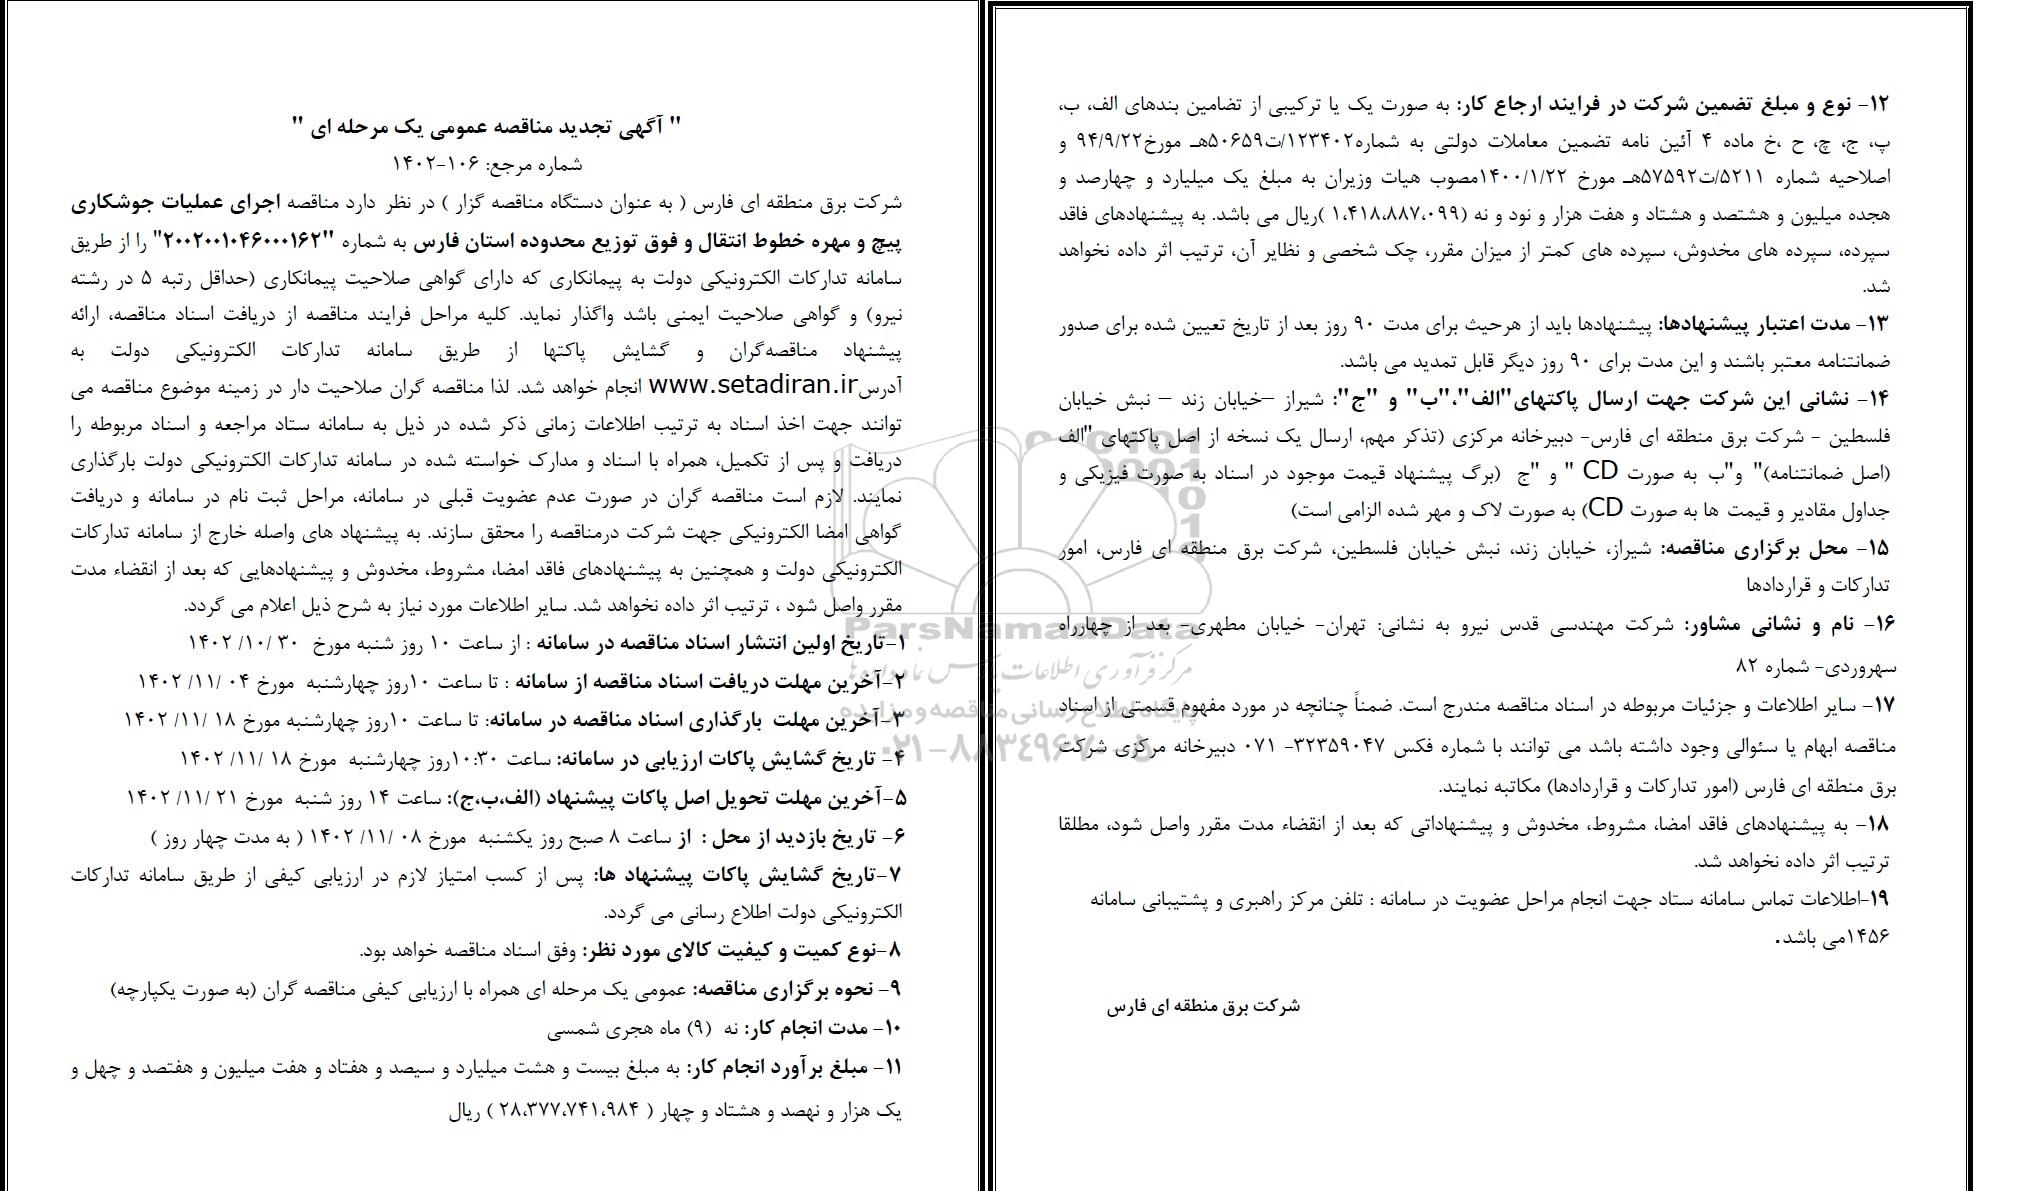 " آگهی تجدید مناقصه عمومی یک مرحله ای "
شماره مرجع: ۱۰۶-۱۴۰۲
شرکت برق منطقه ای فارس ( به عنوان دستگاه مناقصه گزار ) در نظر دارد مناقصه اجرای عملیات جوشکاری
پیچ و مهره خطوط انتقال و فوق توزیع محدوده استان فارس به شماره "۲۰۰۲۰۰۱۰۴۶۰۰۰۱۶۲" را از طریق
سامانه تدارکات الکترونیکی دولت به پیمانکاری که دارای گواهی صلاحیت پیمانکاری (حداقل رتبه ۵ در رشته
نیرو) و گواهی صلاحیت ایمنی باشد واگذار نماید. کلیه مراحل فرایند مناقصه از دریافت اسناد مناقصه، ارائه
پیشنهاد مناقصه‌گران و گشایش پاکتها از طریق سامانه تدارکات الکترونیکی دولت به
آدرسwww.setadiran.ir انجام خواهد شد. لذا مناقصه گران صلاحیت دار در زمینه موضوع مناقصه می
توانند جهت اخذ اسناد به ترتیب اطلاعات زمانی ذکر شده در ذیل به سامانه ستاد مراجعه و اسناد مربوطه را
دریافت و پس از تکمیل، همراه با اسناد و مدارک خواسته شده در سامانه تدارکات الکترونیکی دولت بارگذاری
نمایند. لازم است مناقصه گران در صورت عدم عضویت قبلی در سامانه، مراحل ثبت نام در سامانه و دریافت
گواهی امضا الکترونیکی جهت شرکت درمناقصه را محقق سازند. به پیشنهاد های واصله خارج از سامانه تدارکات
الکترونیکی دولت و همچنین به پیشنهادهای فاقد امضا، مشروط، مخدوش و پیشنهادهایی که بعد از انقضاء مدت
مقرر واصل شود ، ترتیب اثر داده نخواهد شد. سایر اطلاعات مورد نیاز به شرح ذیل اعلام می گردد.
۱-تاریخ اولین انتشار اسناد مناقصه در سامانه : از ساعت ۱۰ روز شنبه مورخ ۳۰ /۱۰/ ۱۴۰۲
۲-آخرین مهلت دریافت اسناد مناقصه از سامانه : تا ساعت ۱۰روز چهارشنبه مورخ ۰۴ /۱۱/ ۱۴۰۲
۳-آخرین مهلت بارگذاری اسناد مناقصه در سامانه: تا ساعت ۱۰روز چهارشنبه مورخ ۱۸ /۱۱/ ۱۴۰۲
۴- تاریخ گشایش پاکات ارزیابی در سامانه: ساعت ۱۰:۳۰روز چهارشنبه مورخ ۱۸ /۱۱/ ۱۴۰۲
۵-آخرین مهلت تحویل اصل پاکات پیشنهاد (الف،ب،ج): ساعت ۱۴ روز شنبه مورخ ۲۱ /۱۱/ ۱۴۰۲
۶- تاریخ بازدید از محل : از ساعت ۸ صبح روز یکشنبه مورخ ۰۸ /۱۱/ ۱۴۰۲ ( به مدت چهار روز )
۷-تاریخ گشایش پاکات پیشنهاد ها: پس از کسب امتیاز لازم در ارزیابی کیفی از طریق سامانه تدارکات
الکترونیکی دولت اطلاع رسانی می گردد.
۸-نوع کمیت و کیفیت کالای مورد نظر: وفق اسناد مناقصه خواهد بود.
۹- نحوه برگزاری مناقصه: عمومی یک مرحله ای همراه با ارزیابی کیفی مناقصه گران (به صورت یکپارچه)
۱۰- مدت انجام کار: نه (۹) ماه هجری شمسی
۱۱- مبلغ برآورد انجام کار: به مبلغ بیست و هشت میلیارد و سیصد و هفتاد و هفت میلیون و هفتصد و چهل و
یک هزار و نهصد و هشتاد و چهار ( ۲۸،۳۷۷،۷۴۱،۹۸۴ ) ریال
۱۲- نوع و مبلغ تضمین شرکت در فرایند ارجاع کار: به صورت یک یا ترکیبی از تضامین بندهای الف، ب،
پ، ج، چ، ح ،خ ماده ۴ آئین نامه تضمین معاملات دولتی به شماره۱۲۳۴۰۲/ت۵۰۶۵۹هـ مورخ۹۴/۹/۲۲ و
اصلاحیه شماره ۵۲۱۱/ت۵۷۵۹۲هـ مورخ ۱۴۰۰/۱/۲۲مصوب هیات وزیران به مبلغ یک میلیارد و چهارصد و
هجده میلیون و هشتصد و هشتاد و هفت هزار و نود و نه (۱،۴۱۸،۸۸۷،۰۹۹ )ریال می باشد. به پیشنهادهای فاقد
سپرده، سپرده های مخدوش، سپرده های کمتر از میزان مقرر، چک شخصی و نظایر آن، ترتیب اثر داده نخواهد
شد.
۱۳- مدت اعتبار پیشنهادها: پیشنهادها باید از هرحیث برای مدت ۹۰ روز بعد از تاریخ تعیین شده برای صدور
ضمانتنامه معتبر باشند و این مدت برای ۹۰ روز دیگر قابل تمدید می باشد.
۱۴- نشانی این شرکت جهت ارسال پاکتهای"الف"،"ب" و "ج": شیراز –خیابان زند – نبش خیابان
فلسطین - شرکت برق منطقه ای فارس- دبیرخانه مرکزی (تذکر مهم، ارسال یک نسخه از اصل پاکتهای "الف
(اصل ضمانتنامه)" و"ب به صورت CD " و "ج (برگ پیشنهاد قیمت موجود در اسناد به صورت فیزیکی و
جداول مقادیر و قیمت ها به صورت CD) به صورت لاک و مهر شده الزامی است)
۱۵- محل برگزاری مناقصه: شیراز، خیابان زند، نبش خیابان فلسطین، شرکت برق منطقه ای فارس، امور
تدارکات و قراردادها
۱۶- نام و نشانی مشاور: شرکت مهندسی قدس نیرو به نشانی: تهران- خیابان مطهری- بعد از چهارراه
سهروردی- شماره ۸۲
۱۷- سایر اطلاعات و جزئیات مربوطه در اسناد مناقصه مندرج است. ضمناً چنانچه در مورد مفهوم قسمتی از اسناد
مناقصه ابهام یا سئوالی وجود داشته باشد می توانند با شماره فکس ۳۲۳۵۹۰۴۷- ۰۷۱ دبیرخانه مرکزی شرکت
برق منطقه ای فارس (امور تدارکات و قراردادها) مکاتبه نمایند.
۱۸- به پیشنهادهای فاقد امضا، مشروط، مخدوش و پیشنهاداتی که بعد از انقضاء مدت مقرر واصل شود، مطلقا
ترتیب اثر داده نخواهد شد.
۱۹-اطلاعات تماس سامانه ستاد جهت انجام مراحل عضویت در سامانه : تلفن مرکز راهبری و پشتیبانی سامانه
۱۴۵۶می باشد.
شرکت برق منطقه ای فارس
ParsNamadData
مرکز فرآوری اطلاعات پارس نماد داده‌ها
پایگاه اطلاع رسانی مناقصه و مزایده
۰۲۱-۸۸۳۴۹۶۷۰-۵